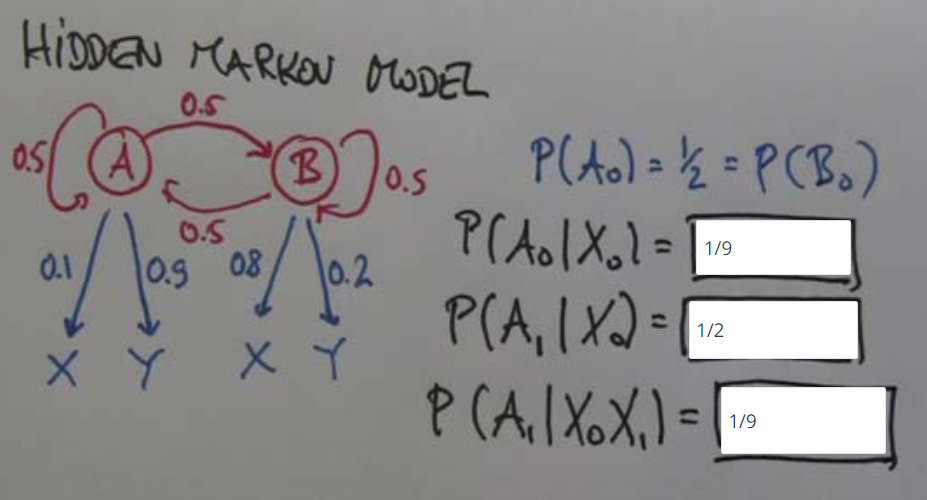 HiDDEN MARKOV MODEL
0.5
0.5 A B 0.5
0.5
0.1 0.9 08 0.2
X Y X Y
P(A₀) = ½ = P(B₀)
P(A₀|X₀) = 1/9
P(A₁|X₀) = 1/2
P(A₁|X₀X₁) = 1/9